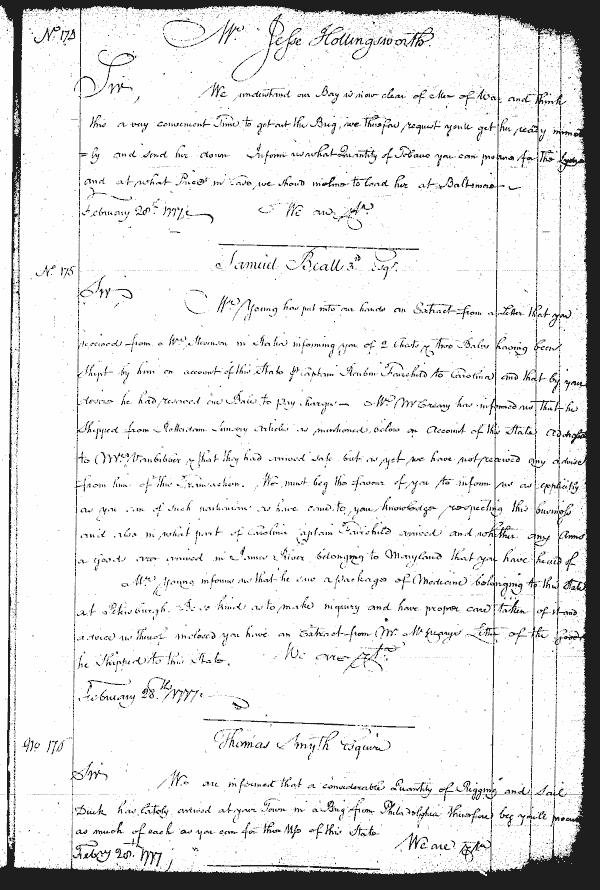 No 174
Mr. Jesse Hollingsworth.
Sir,
We understand our Bay is now clear of Men of War and think
this a very convenient Time to get out the Brig, we therefore request you'll get her ready imme
=by and send her down Inform us what Quantity of Tobacco you can procure for the
and at what Price in Case we should incline to load her at Baltimore
February 28th. 1777. We are &c.
No 175
Samuel Beall 3rd Esqr.
Sir
Mr. Young has put into our hands an Extract from a Letter that you
received from a Mr. Stevenson in informing you of 2 Chests & two Bales having been
Shipt by him on account of this State Captain Fairchild to Carolina and that by your
desire he had received one Bale to Pay charges Mr. McCreary has informed us that he
Shipped from Rotterdam Article as mentioned below on Account of this State
to Mr. Vanbibber & that they had arrived safe but as yet we have not received any advice
from him of this Transaction. We must beg the favour of you to inform us as explicitly
as you can of such particulars as have come to your knowledge respecting this business
and also in what part of Carolina Captain Fairchild arrived and whether any Arms
a good arrived in James River belonging to Maryland that you have heard of
Mr. Young informs us that he saw a packages of Medicine belonging to this State
at Petersburgh. Be so kind as to make inquiry and have proper care taken of it and
advice us thereof inclosed you have an Extract from Mr. McCrearys Letter of the Goods
he Shipped to this State. We are &c.
February 28.th 1777.
No 176
Thomas Smyth Esquire
Sir
We are informed that a considerable Quantity of Rigging and Sail
Duck has lately arrived at your Town in a Brig from Philadelphia therefore beg you'll procure
as much of each as you can for the Use of this State
Feb'ry 28th. 1777 We are &c